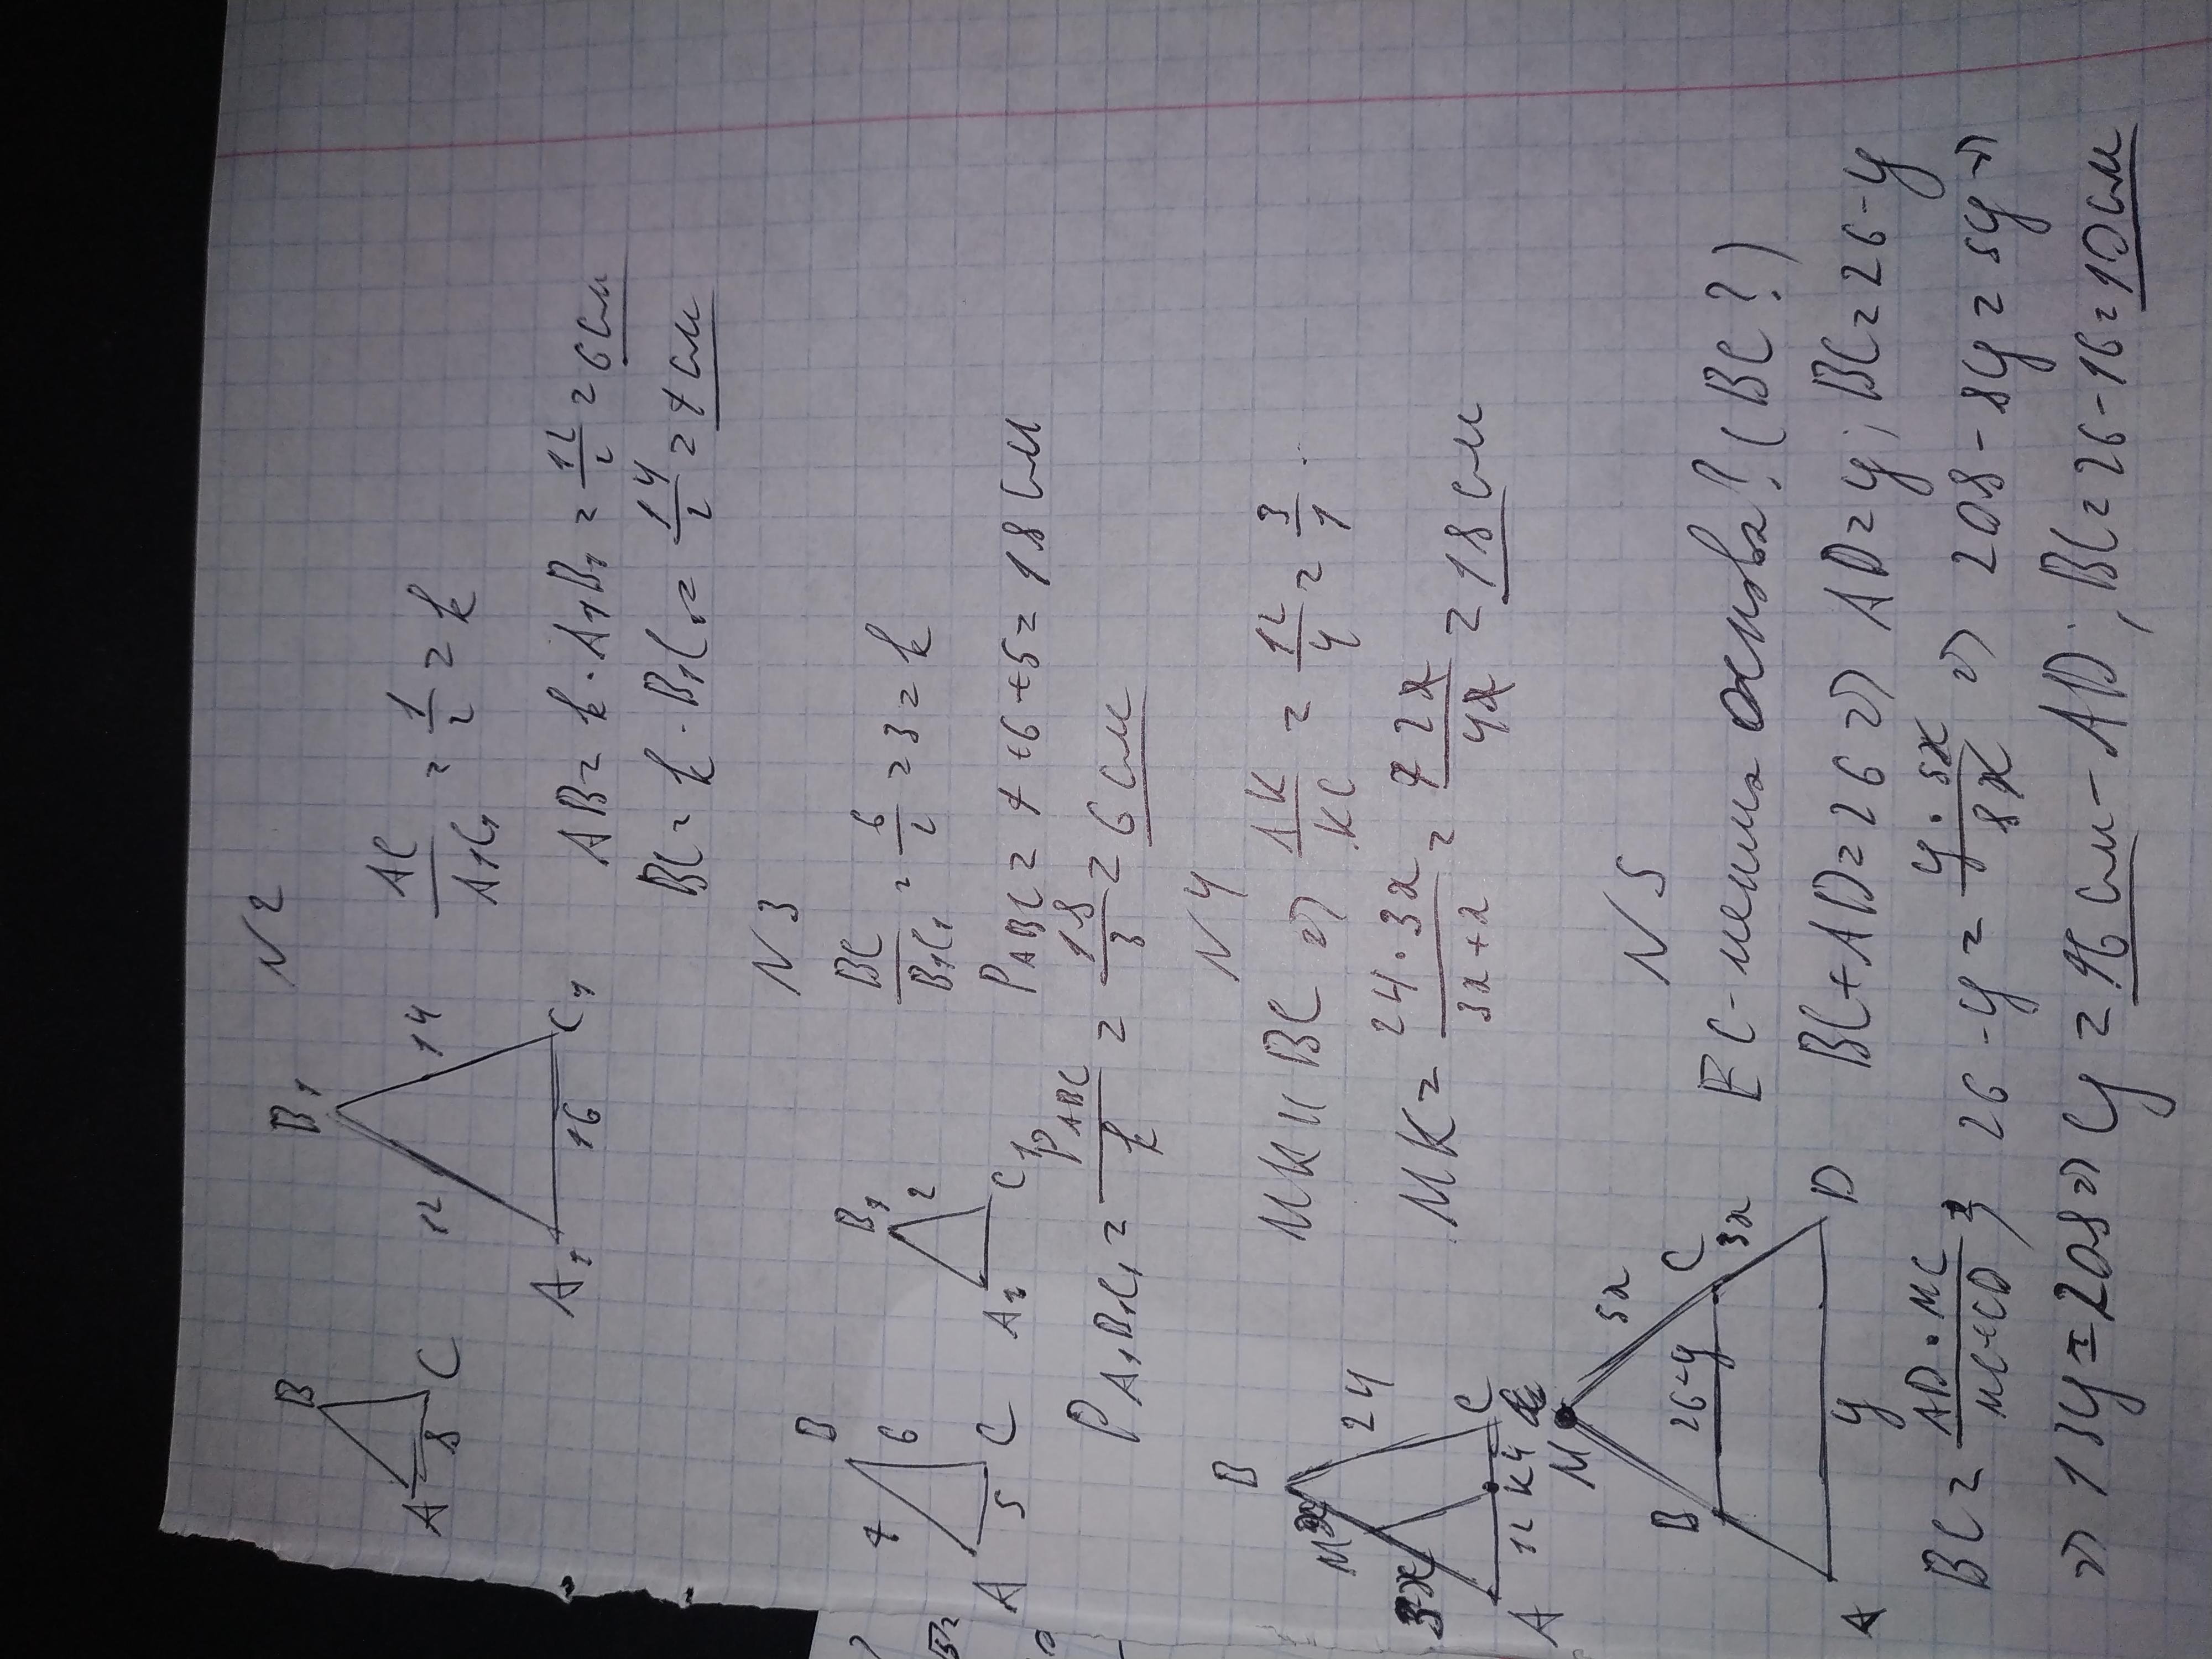 N2
B
A
8
C
B1
12
14
A1
16
C1
AC/A1C1 = 1/2 = k
AB = k · A1B1 = 12/2 = 6 см
BC = k · B1C1 = 14/2 = 7 см
N3
B
7
6
A
5
C
B1
2
A1
C1
BC/B1C1 = 6/2 = 3 = k
PABC = 7+6+5 = 18 см
PA1B1C1 = PABC/k = 18/3 = 6 см
N4
B
M
24
3x
A
12
K
4
C
MK || BC => AK/KC = 12/4 = 3/1
MK = 24·3x/3x+x = 72x/4x = 18 см
N5
M
5x
B
26-y
C
3x
A
y
D
BC - менша основа? (BC?)
BC+AD = 26 => AD = y; BC = 26-y
BC = AD·MC/MC+CD => 26-y = y·5x/8x => 208-8y = 5y =>
=> 13y = 208 => y = 16 см - AD; BC = 26-16 = 10 см